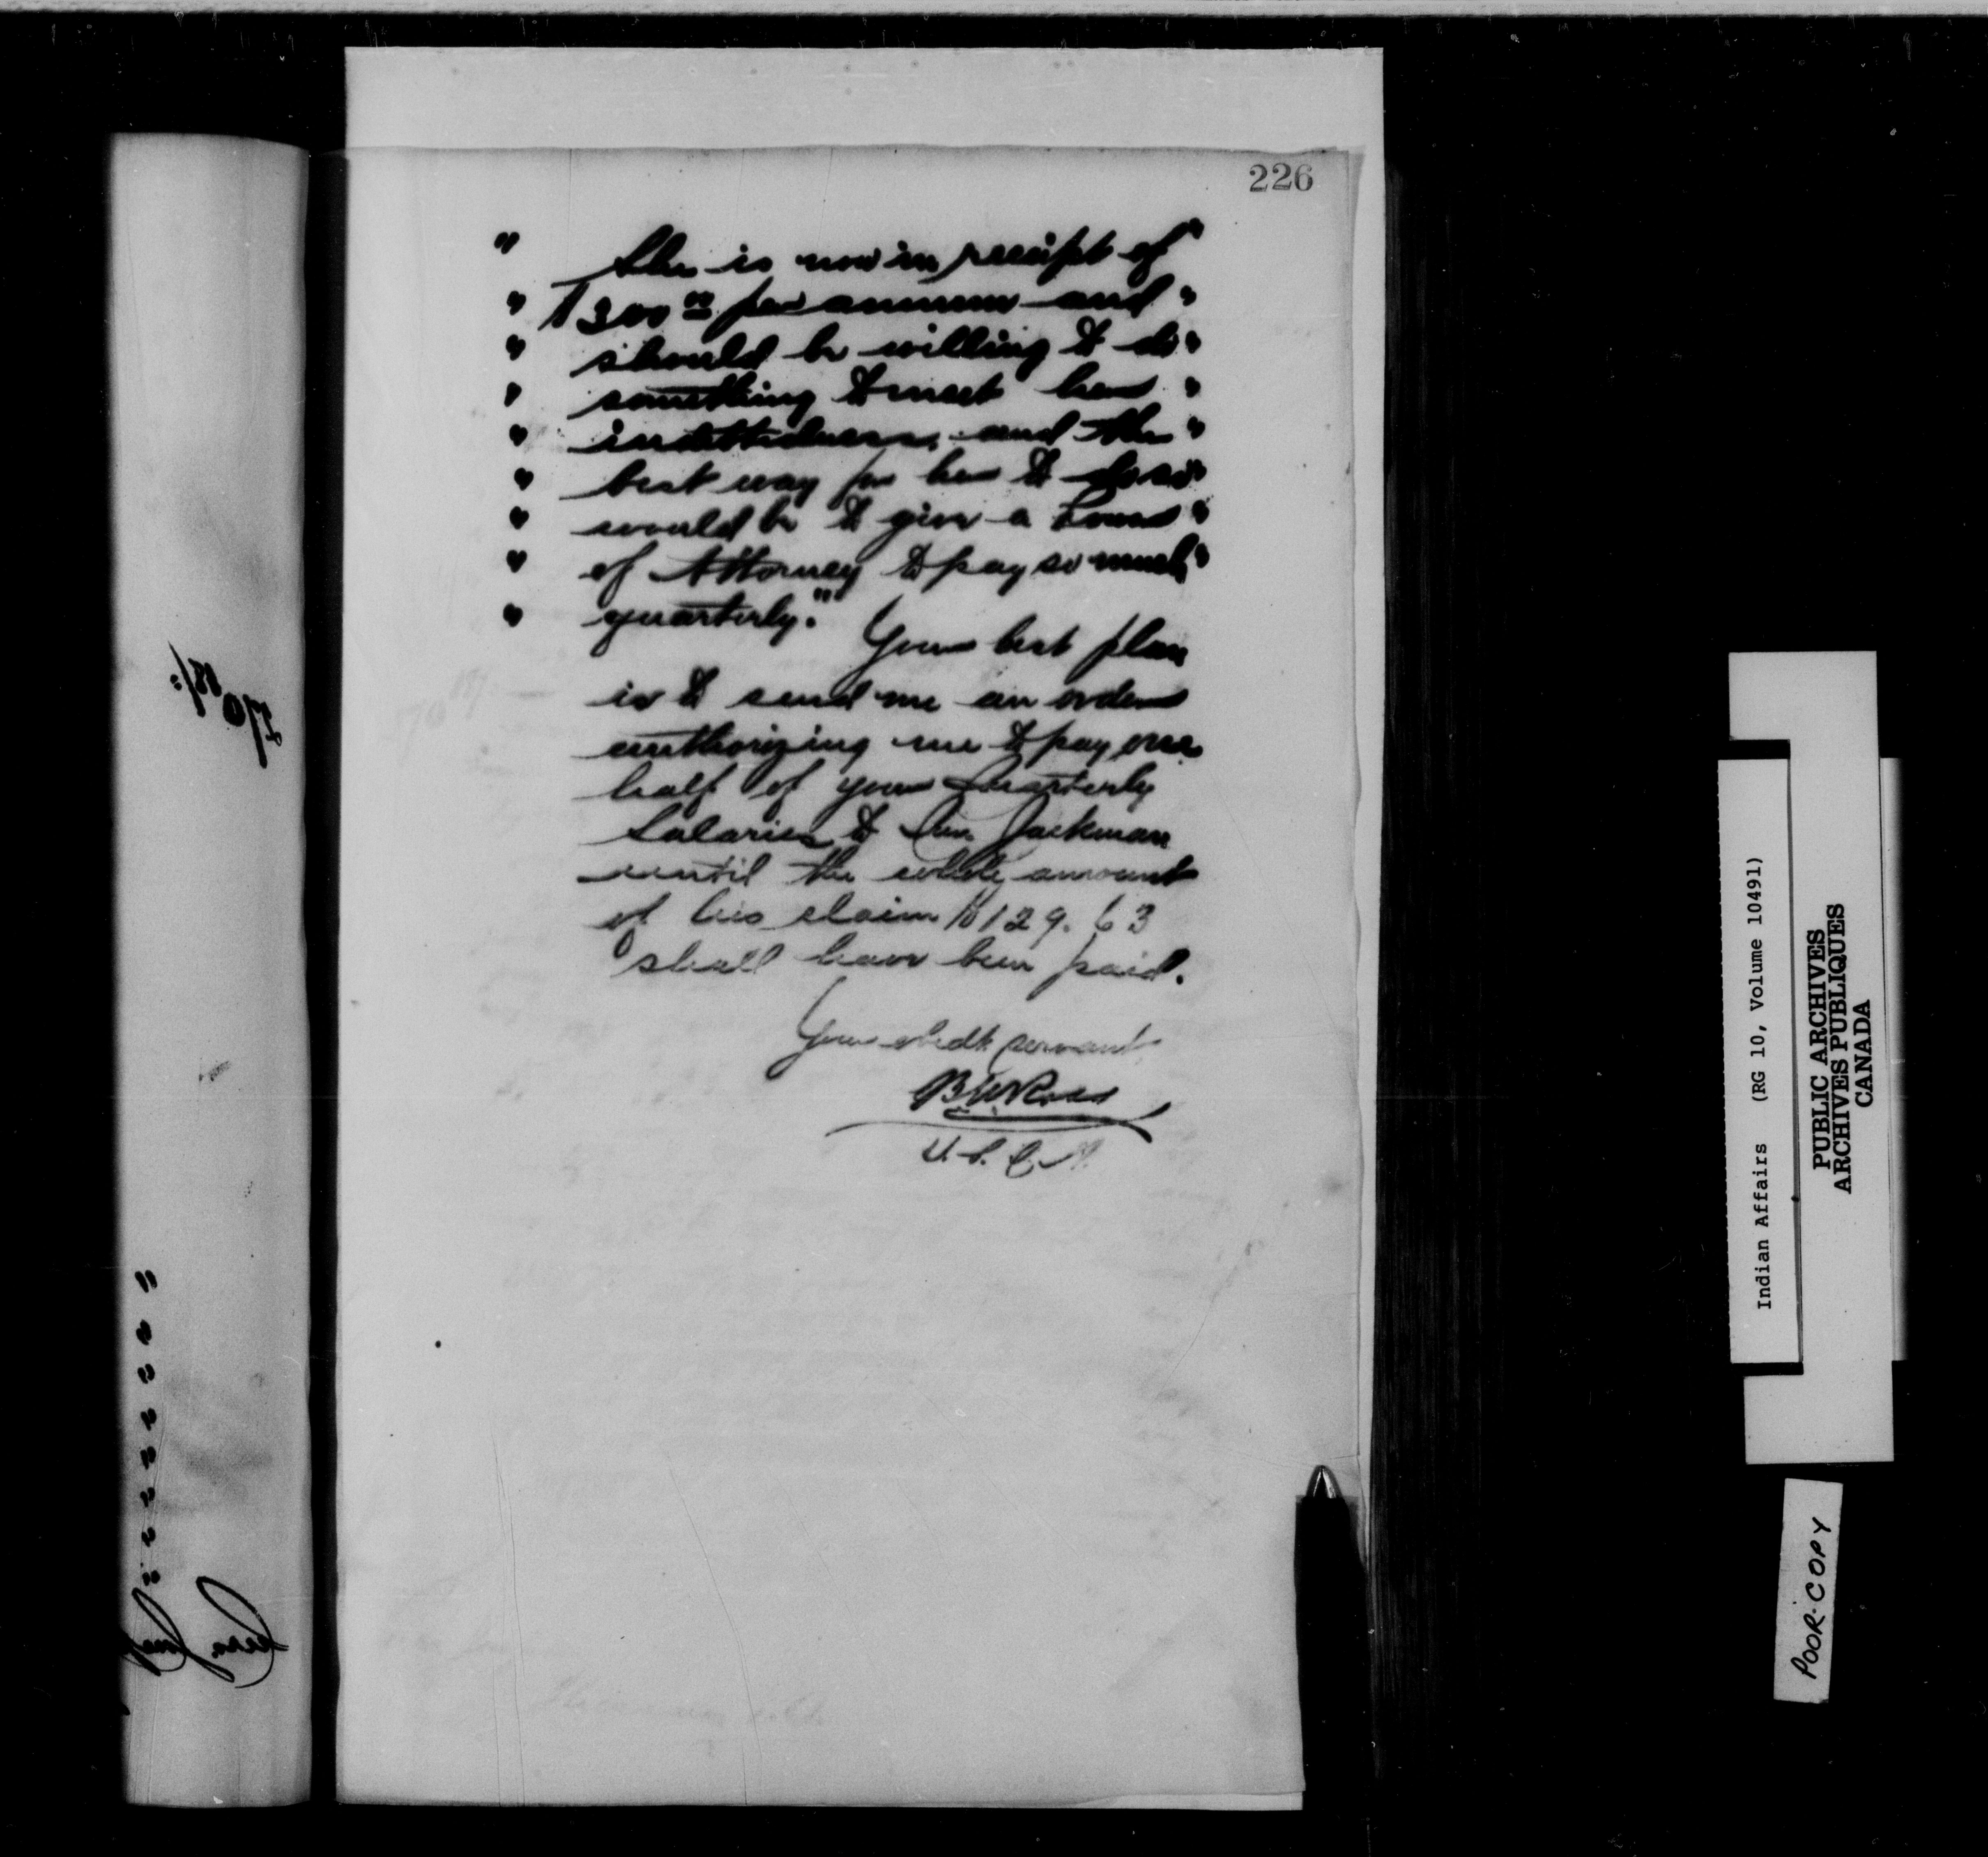 226
" She is now in receipt of "
" $300 00 per annum and "
" should be willing to do "
" something to meet her "
" indebtedness, and the "
" best way for her to do so "
" would be to give a Power "
" of Attorney to pay so much "
" quarterly."
Your best plan
is to send me an order
authorizing me to pay one
half of your Quarterly
Salaries to Jackman
until the whole amount
of his claim $129.63
shall have been paid.
Your obedt servant
B W Ross
Indian Affairs (RG 10, Volume 10491)
PUBLIC ARCHIVES
ARCHIVES PUBLIQUES
CANADA
POOR COPY